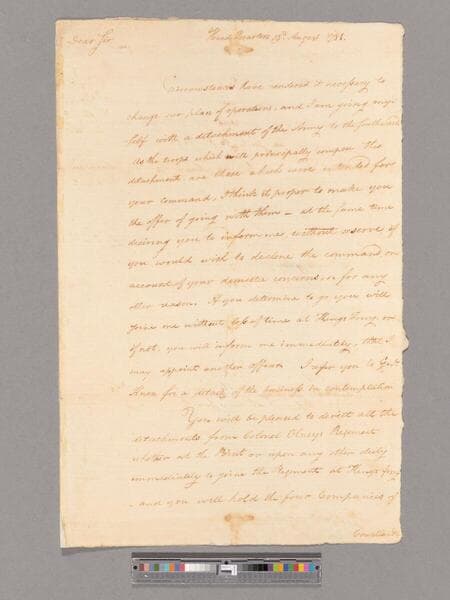 Dear Sir
Head Quarters 19th August 1781.
Circumstances have rendered it necessary to
change our plan of operations, and I am going my-
self with a detachment of the Army to the southward
As the troops which will principally compose the
detachment, are those which were intended for
your command, I think it proper to make you
the offer of going with them — at the same time
desiring you to inform me, without reserve if
you would wish to decline the command on
account of your domestic concerns, or for any
other reason. If you determine to go you will
joine me without loss of time at Kings Ferry or
if not, you will inform me immediately, that I
may appoint another officer. I refer you to Genl
Knox for a detail of the business in contemplation
You will be pleased to direct all the
detachments from Colonel Olneys Regiment
whether at the or upon any other duty
immediately to joine the Regiment at Kings ferry
- and you will hold the four Companies of